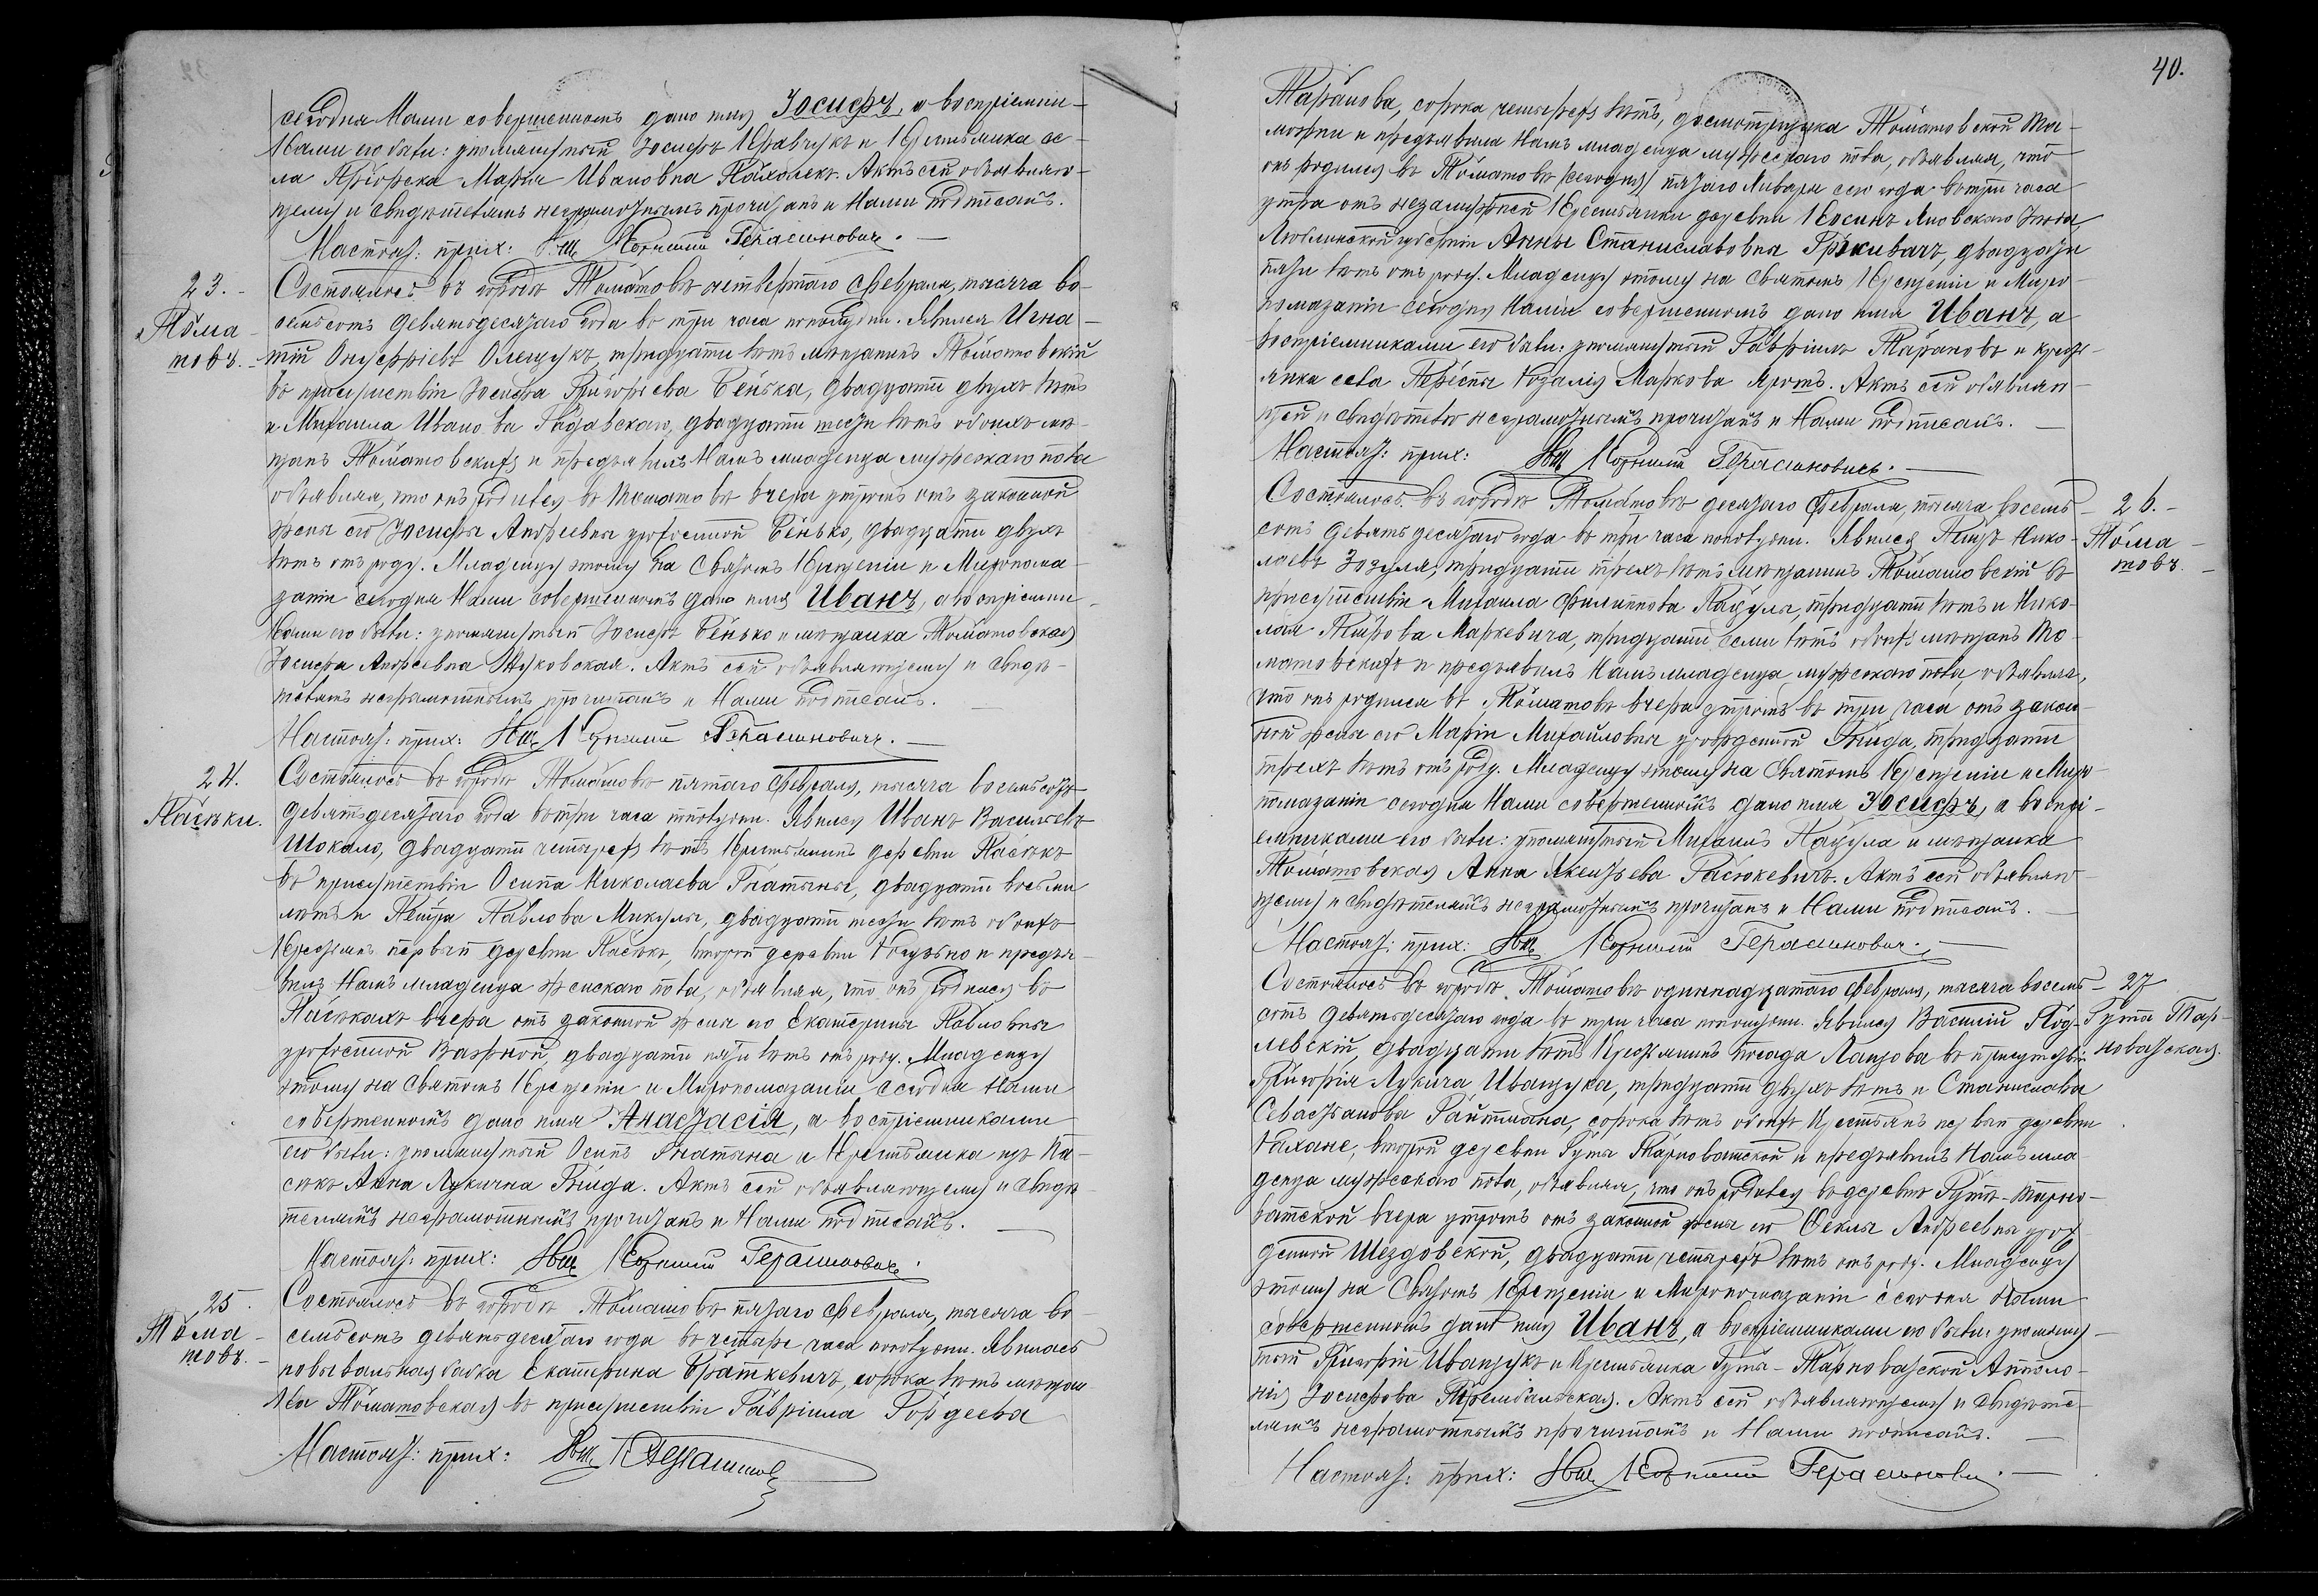 40.
сегодня Нами совершенномъ дано имя Іосифъ, а воспріемни-
ками его были: упомянутый Іосифъ Кравчукъ и Крестьянка се-
ла Пріорска Марія Ивановна Пахолекъ. Актъ сей объявляю-
щему и свидѣтелямъ неграмотнымъ прочитанъ и Нами подписанъ.
Настоят: прих: Свщ Корнилій Герасимовичъ.
23.
Тома-
шовъ.
Состоялось въ городѣ Томашовѣ четвертаго Февраля, тысяча во-
семьсотъ девятьдесятаго года въ три часа пополудни. Явился Игна-
тій Онуфріевъ Олещукъ, тридцати лѣтъ мѣщанинъ Томашовскій
въ присутствіи Іосифа Григорьева Бенька, двадцати двухъ лѣтъ
и Михаила Иванова двадцати шести лѣтъ обоихъ мѣ-
щанъ Томашовскихъ и предъявилъ Намъ младенца мужескаго пола
объявляя, что онъ родился въ Томашовѣ вчера утромъ отъ законной
жены его Іосифы Андреевны урожденной Бенько, двадцати двухъ
лѣтъ отъ роду. Младенцу этому на Святомъ Крещеніи и Миропома-
заніи сегодня Нами совершенномъ дано имя Иванъ, а воспріемни-
ками его были: упомянутый Іосифъ Бенько и мѣщанка Томашовская
Іосифа Андреевна Жуковская. Актъ сей объявляющему и свидѣ-
телямъ неграмотнымъ прочитанъ и Нами подписанъ.
Настоят: прих: Свщ Корнилій Герасимовичъ.
24.
Пасѣки.
Состоялось въ городѣ Томашовѣ пятаго Февраля, тысяча восемьсотъ
девятьдесятаго года въ три часа пополудни. Явился Иванъ Васильевъ
Шокало, двадцати четырехъ лѣтъ Крестьянинъ деревни Пасѣкъ
въ присутствіи Осипа Николаева Гнатыны, двадцати восьми
лѣтъ и Петра Павлова Микулы, двадцати шести лѣтъ обоихъ
Крестьянъ первый деревни Пасѣкъ, второй деревни и предъя-
вилъ Намъ младенца женскаго пола, объявляя, что онъ родился въ
Пасѣкахъ вчера отъ законной жены его Екатерины Павловны
урожденной Важной, двадцати пяти лѣтъ отъ роду. Младенцу
этому на Святомъ Крещеніи и Миропомазаніи сегодня Нами
совершенномъ дано имя Анастасія, а воспріемниками
его были: упомянутый Осипъ Гнатына и Крестьянка изъ Па-
сѣкъ Анна Лукична Гнида. Актъ сей объявляющему и свидѣ-
телямъ неграмотнымъ прочитанъ и Нами подписанъ.
Настоят: прих: Свщ Корнилій Герасимовичъ.
25.
Тома-
шовъ.
Состоялось въ городѣ Томашовѣ пятаго Февраля, тысяча во-
семьсотъ девятьдесятаго года въ четыре часа пополудни. Явилась
повывальная бабка Екатерина Браткевичъ, сорока лѣтъ мѣщан-
ка Томашовская въ присутствіи Гавріила Гордеева
Настоят: прих: Свщ К Герасимов
Таранова, сорока четырехъ лѣтъ, досмотрщика Томашовской Та-
можни и предъявила Намъ младенца мужескаго пола, объявляя, что
онъ родился въ Томашовѣ (сегодня) пятаго Января сего года въ три часа
утра отъ незамужней Крестьянки деревни Косинъ Яновскаго уѣзда
Люблинской губерніи Анны Станиславовны двадцати
пяти лѣтъ отъ роду. Младенцу этому на Святомъ Крещеніи и Миро-
помазаніи сегодня Нами совершенномъ дано имя Иванъ, а
воспріемниками его были: упомянутый Гавріилъ Тарановъ и кресть-
янка села Переспы Розалія Маркова Яротъ. Актъ сей объявляю-
щей и свидѣтелю неграмотнымъ прочитанъ и Нами подписанъ.
Настоят: прих: Свщ Корнилій Герасимовичъ.
26.
Тома-
шовъ.
Состоялось въ городѣ Томашовѣ десятаго Февраля, тысяча восемь-
сотъ девятьдесятаго года въ три часа пополудни. Явился Петръ Нико-
лаевъ Зозуля, тридцати трехъ лѣтъ мѣщанинъ Томашовскій въ
присутствіи Михаила Филиппова Пацулы, тридцати лѣтъ и Нико-
лая Петрова Маркевича, тридцати семи лѣтъ обоихъ мѣщанъ То-
машовскихъ и предъявилъ Намъ младенца мужескаго пола, объявляя,
что онъ родился въ Томашовѣ вчера утромъ въ три часа отъ закон-
ной жены его Маріи Михайловны урожденной Гнида, тридцати
трехъ лѣтъ отъ роду. Младенцу этому на Святомъ Крещеніи и Миро-
помазаніи сегодня Нами совершенномъ дано имя Іосифъ, а воспрі-
емниками его были: упомянутый Михаилъ Пацула и мѣщанка
Томашовская Анна Гасюкевичъ. Актъ сей объявляю-
щему и свидѣтелямъ неграмотнымъ прочитанъ и Нами подписанъ.
Настоят: прих: Свщ Корнилій Герасимович.
27
Гута Тар-
новатская.
Состоялось въ городѣ Томашовѣ одиннадцатаго Февраля, тысяча восемь-
сотъ девятьдесятаго года въ три часа пополудни. Явился Василій Под-
левскій, двадцати лѣтъ Крестьянинъ посада Лащова въ присутствіи
Григорія Лукича Иващука, тридцати двухъ лѣтъ и Станислава
Севастьянова Райтмана, сорока лѣтъ обоихъ Крестьянъ первый деревни
Рахане, второй деревни Гуты Тарноватской и предъявилъ Намъ мла-
денца мужескаго пола, объявляя, что онъ родился въ деревнѣ Гутѣ-Тарно-
ватской вчера утромъ отъ законной жены его Феклы Андреевны урож-
денной Шездовской, двадцати четырехъ лѣтъ отъ роду. Младенцу
этому на Святомъ Крещеніи и Миропомазаніи сегодня Нами
совершенномъ дано имя Иванъ, а воспріемниками его были: упомяну-
тый Григорій Иващукъ и Крестьянка Гуты-Тарноватской Аполо-
нія Іосифова Актъ сей объявляющему и свидѣте-
лямъ неграмотнымъ прочитанъ и Нами подписанъ.
Настоят: прих: Свщ Корнилій Герасимови.